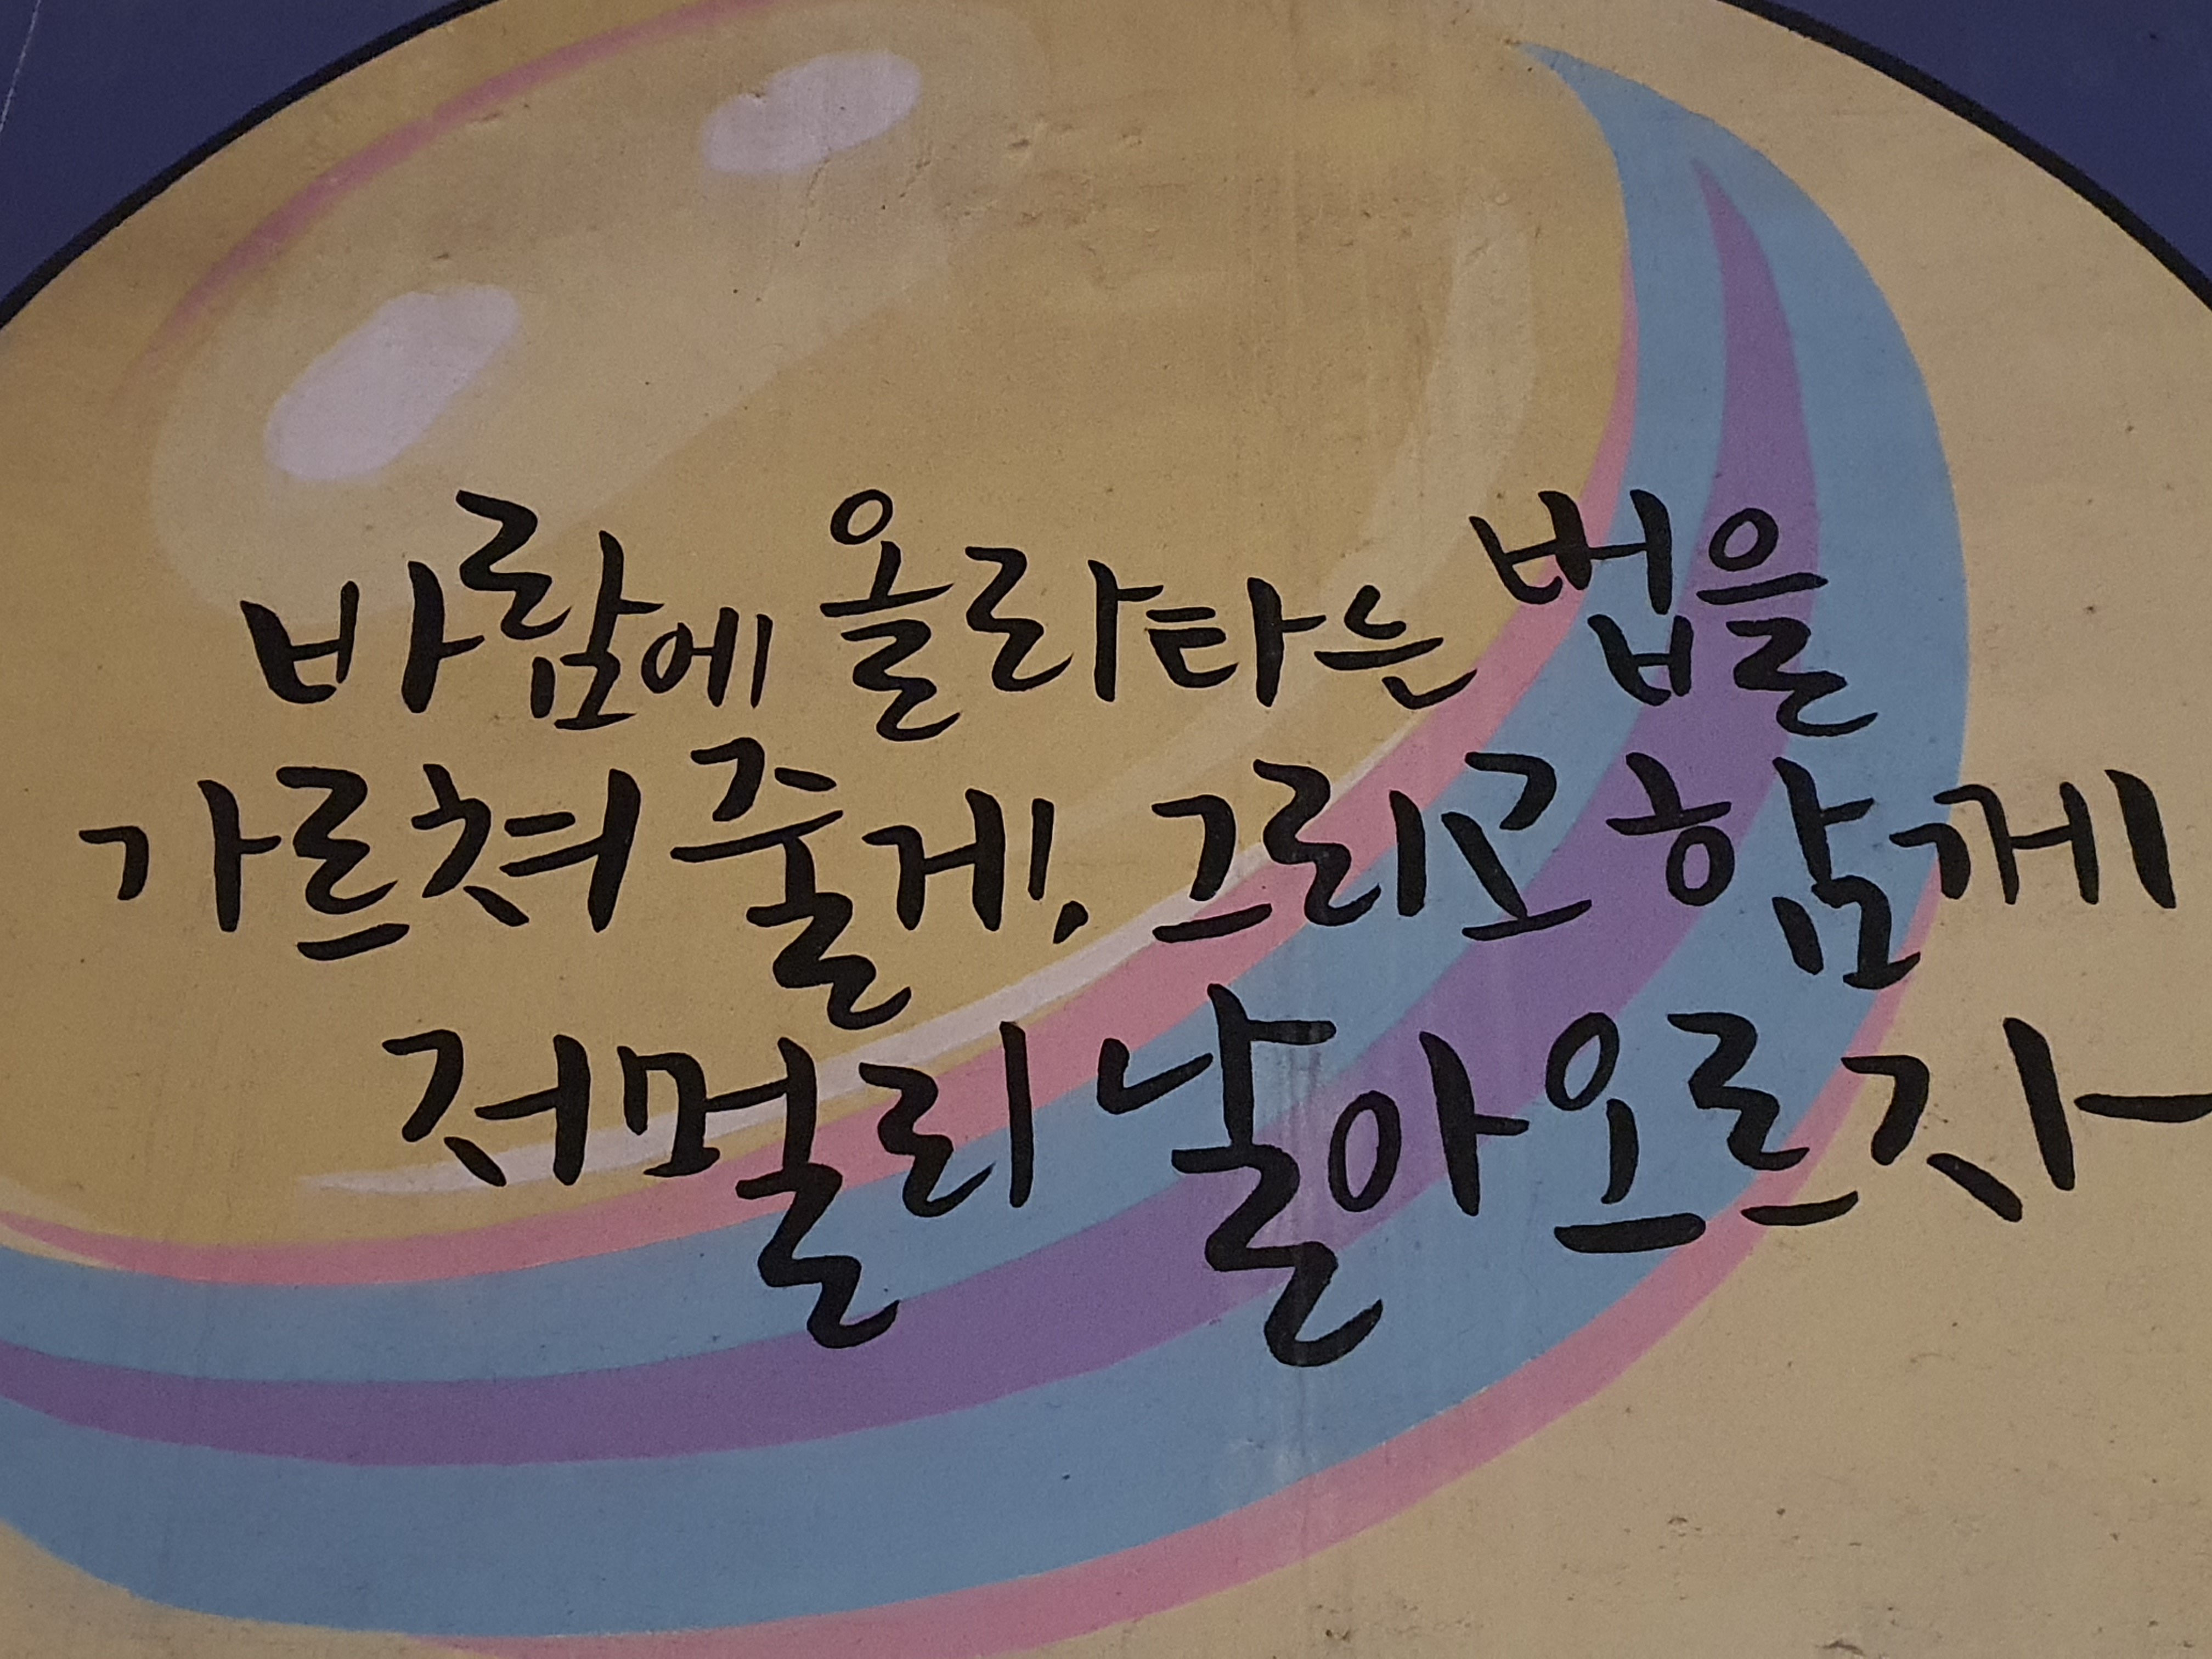 바람에 올라타는 법을
가르쳐 줄게!, 그리고 함께
저멀리 날아오르자